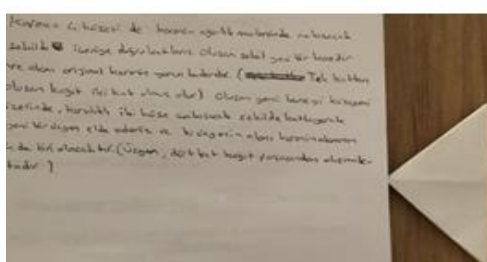 Karenin 4 köşesi de karenin ağırlık merkezinde
şekilde içeriye doğru katlanır. Oluşan şekil yeni bir karedir
ve alanı orijinal karenin yarısı kadardır. ( Tek kattan
oluşan kağıt iki kat olmuş olur) Oluşan yeni kareyi köşegeni
üzerinde, karşılıklı iki köşe şekilde katlayarak
yeni bir üçgen elde ederiz ve bu üçgenin alanı karenin alanının
de biri olacaktır. (Üçgen, dört kat kağıt
tadır.)